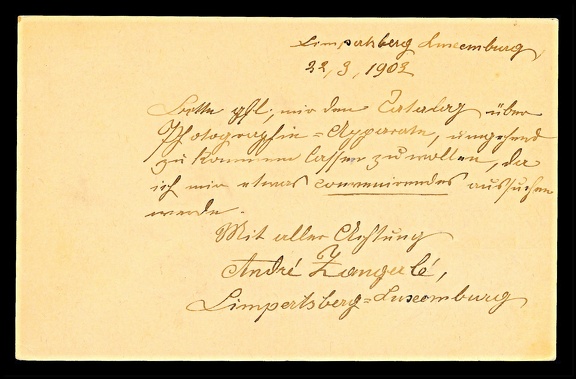 Limpertsberg Luxemburg,
22, 3, 1902
Bitte gfl, mir den Catalog über
Photographie=Apparate, umgehend
zu kommen lassen zu wollen, da
ich mir etwas convenirendes aussuchen
werde.
Mit aller Achtung
André Zangerlé,
Limpertsberg=Luxemburg